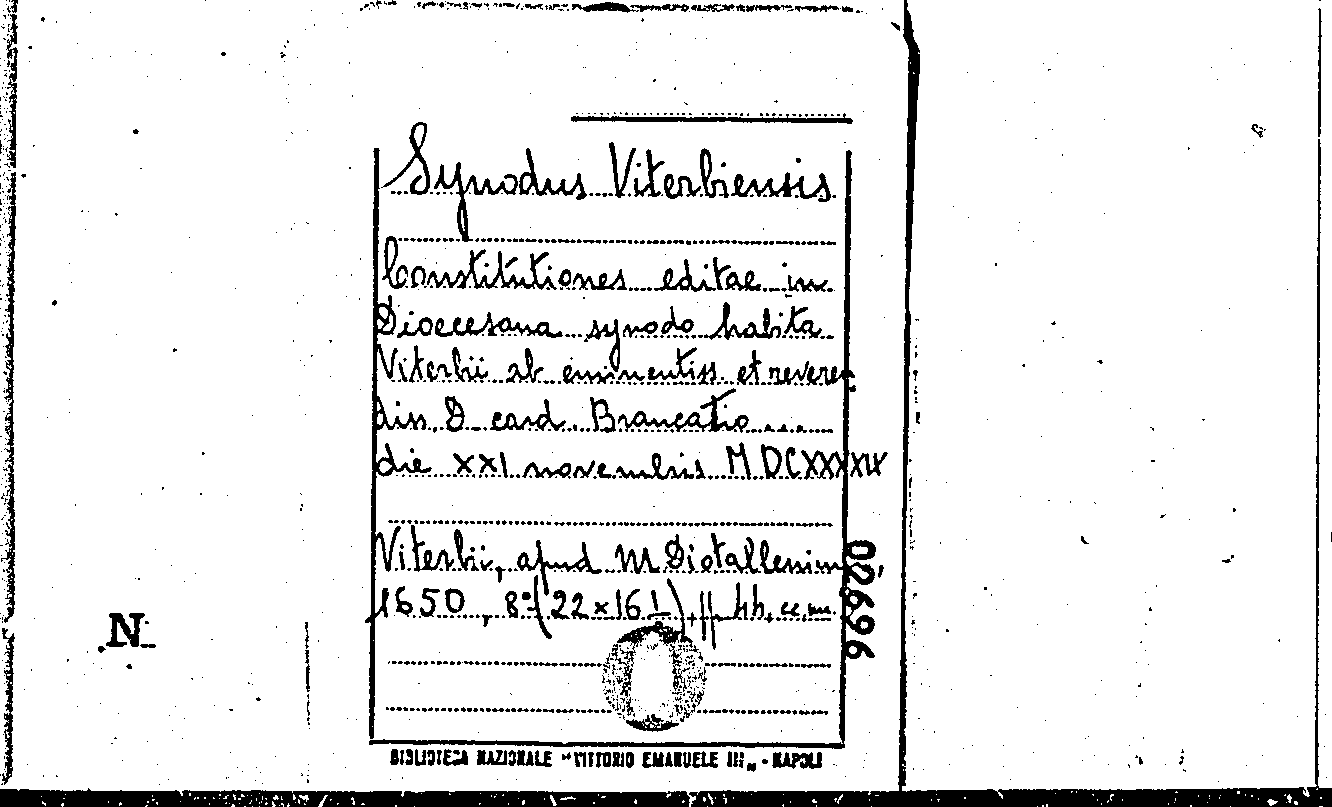 Synodus Viterbiensis
Constitutiones editae in
Dioecesana synodo habita
Viterbii ab eminentiss. et reveren
diss. D. card. Brancatio ...
die XXI novembris MDCXXXXIX
Viterbii, apud M. Diotallevium,
1650, 8° (22 × 16
02696
N.
BIBLIOTECA NAZIONALE "VITTORIO EMANUELE III" - NAPOLI